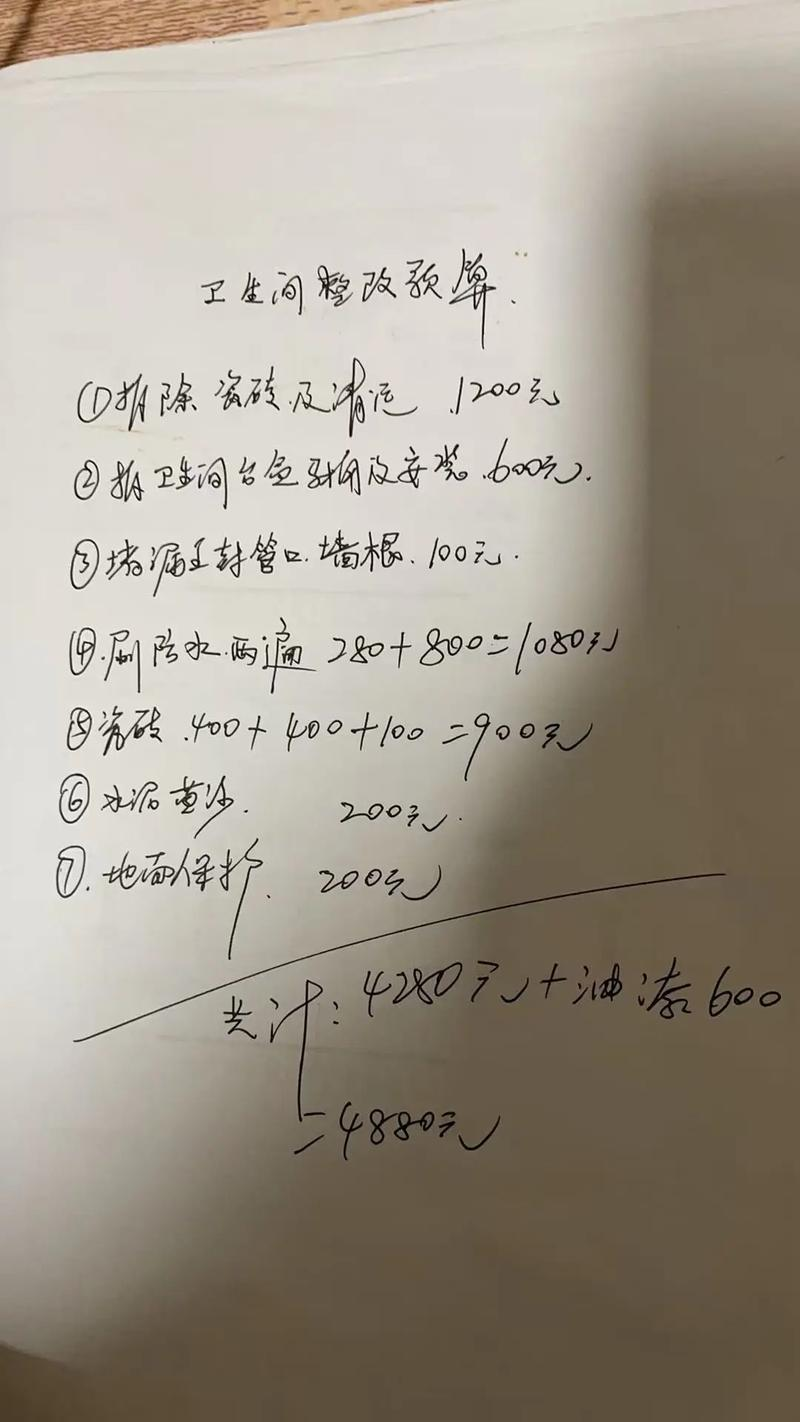 卫生间整改预算.
①拆除瓷砖及清运 .1200元
②拆卫生间台盆马桶及安装.600元.
③堵漏王封管口.墙根.100元.
④.刷防水.两遍 280+800=1080元
⑤瓷砖.400+400+100=900元
⑥水泥黄沙. 200元.
⑦.地面保护. 200元
共计:4280元+油漆600
=4880元